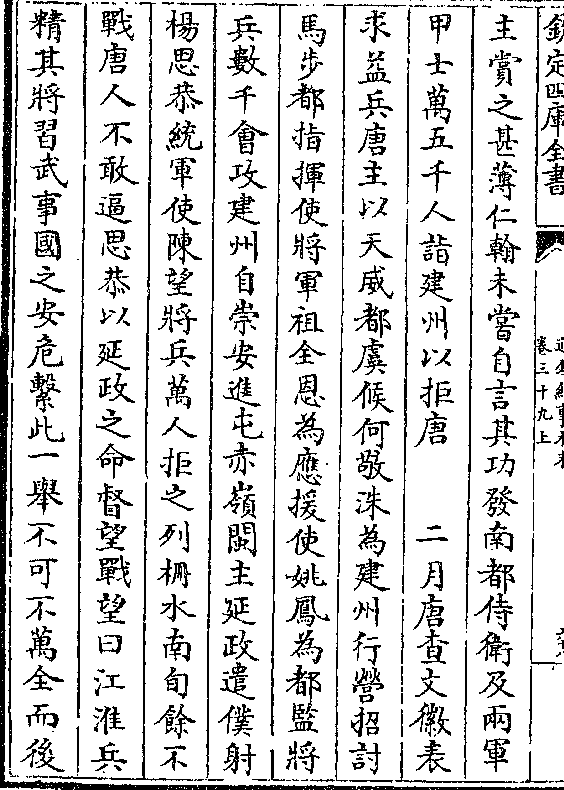 欽定四庫全書
卷三十九上
主賞之甚薄仁翰未嘗自言其功發南都侍衛及兩軍
甲士萬五千人詣建州以拒唐　二月唐查文徽表
求益兵唐主以天威都虞候何敬洙為建州行營招討
馬步都指揮使將軍祖全恩為應援使姚鳳為都監將
兵數千會攻建州自崇安進屯赤嶺閩主延政遣僕射
楊思恭統軍使陳望將兵萬人拒之列柵水南旬餘不
戰唐人不敢逼思恭以延政之命督望戰望曰江淮兵
精其將習武事國之安危繫此一舉不可不萬全而後